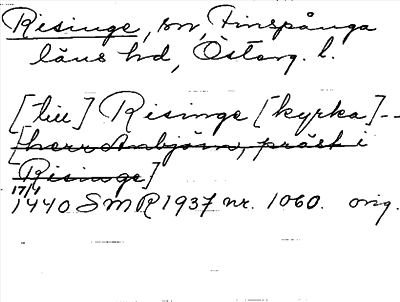 Risinge, sn, Finspånga
läns hd, Östерg. l.
[till] Risinge [kyrka]--
[herr Anbjörn, präst i
Risinge]
17/4
1440 SMR 1937 nr. 1060. orig.